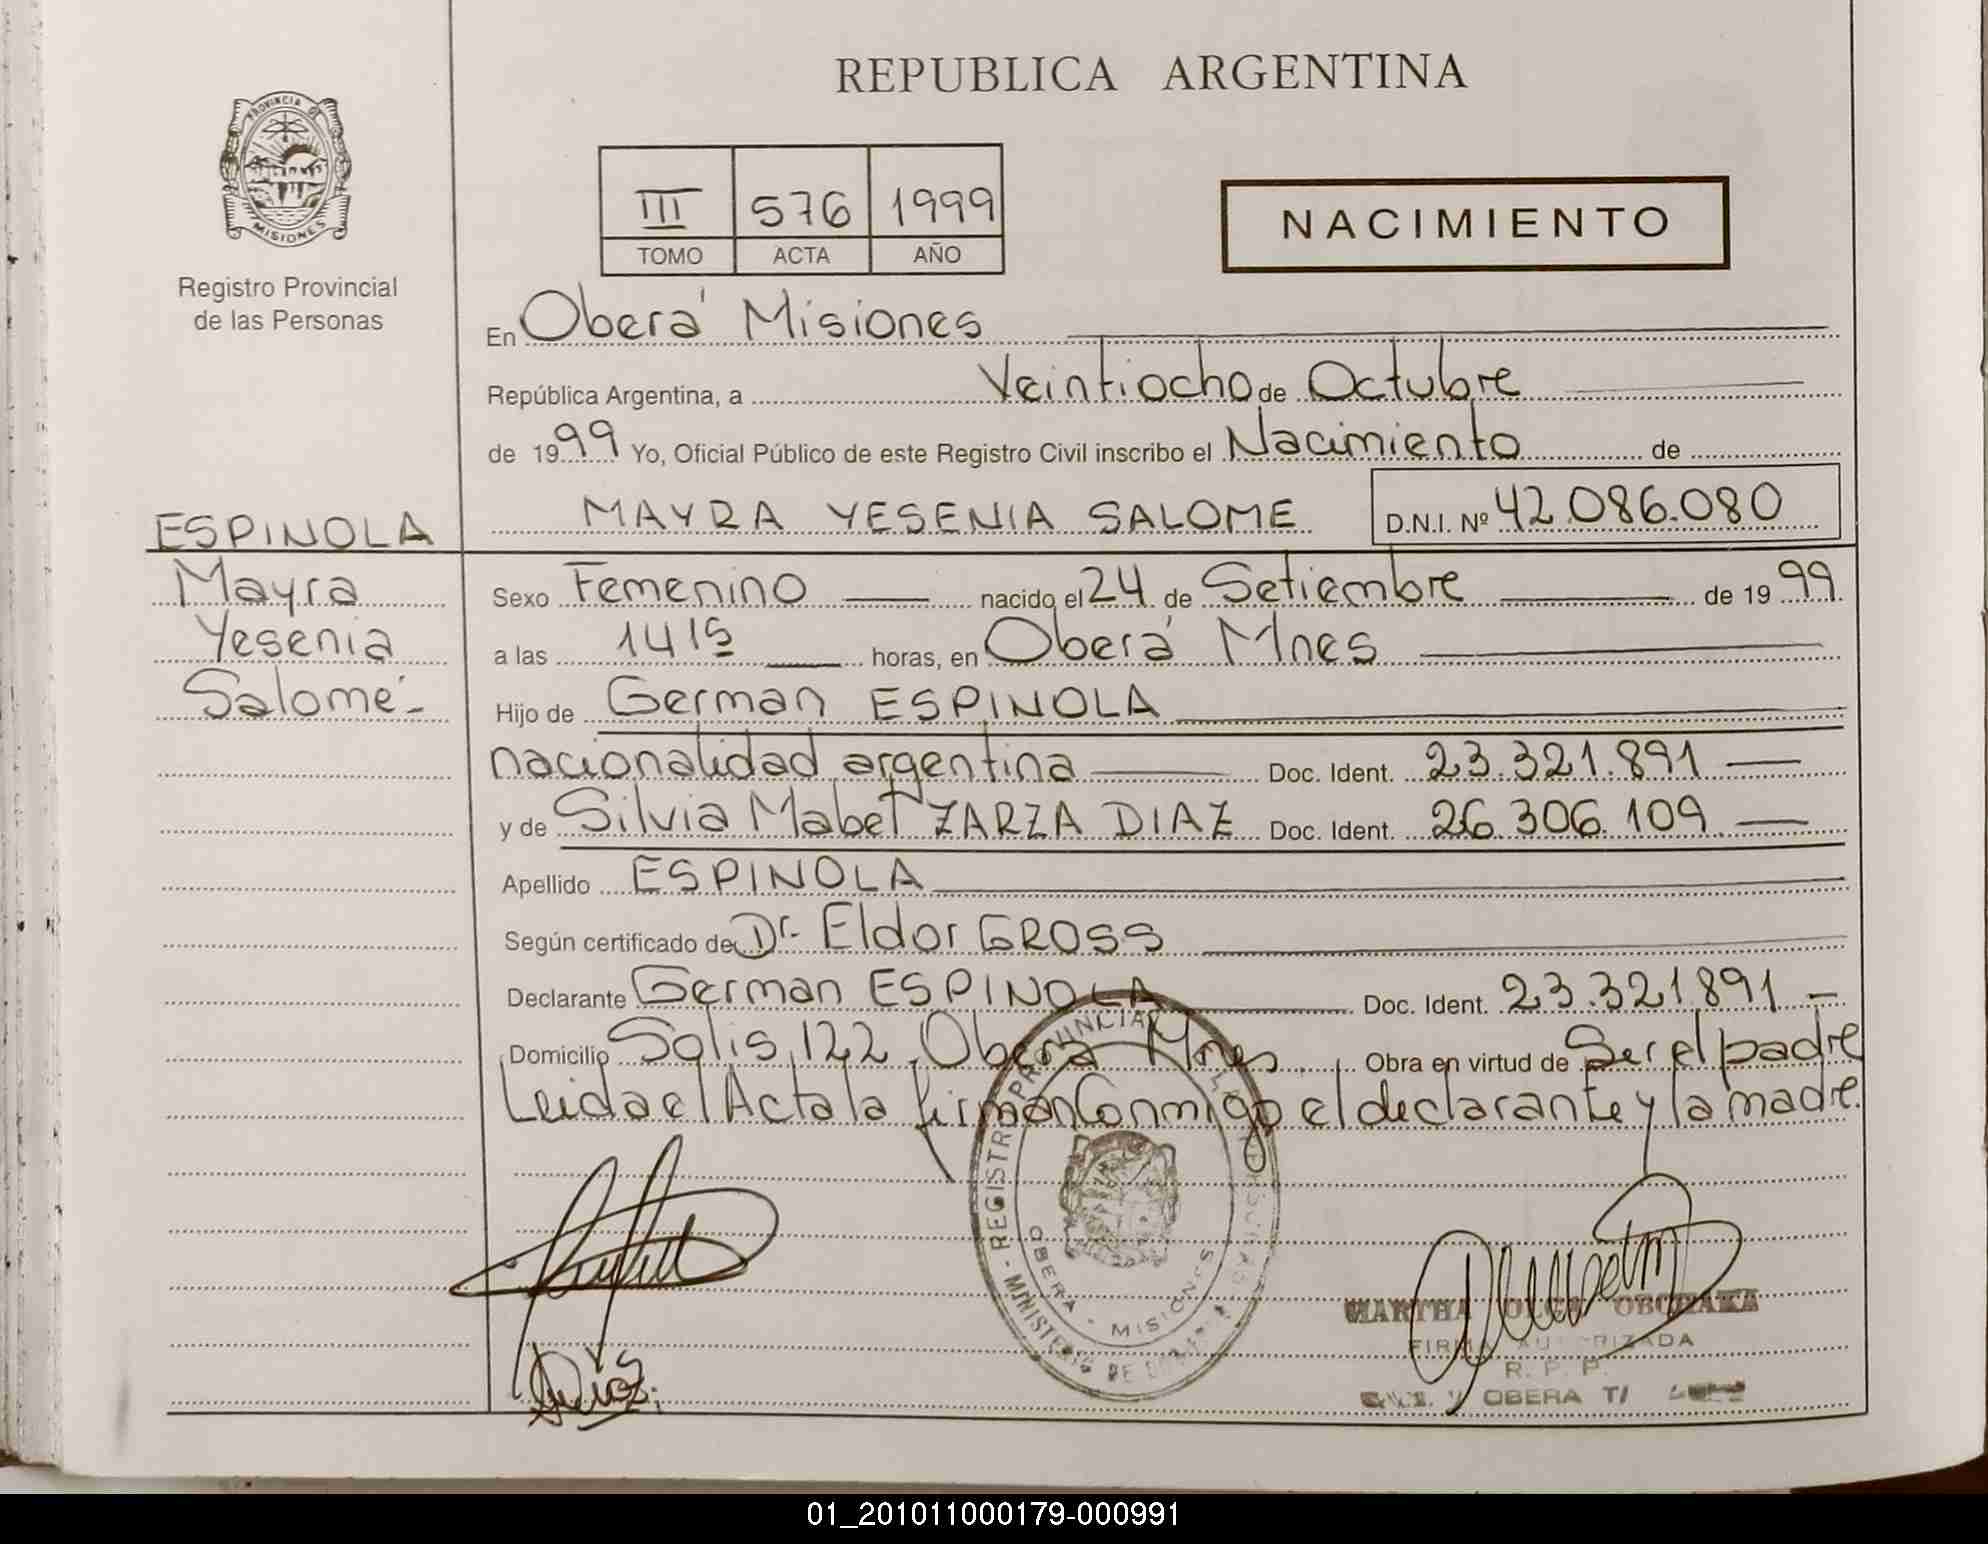 REPUBLICA ARGENTINA
PROVINCIA DE
MISIONES
Registro Provincial
de las Personas
III 576 1999
TOMO ACTA AÑO
NACIMIENTO
En Oberá Misiones
República Argentina, a Veintiocho de Octubre
de 1999 Yo, Oficial Público de este Registro Civil inscribo el Nacimiento de
MAYRA YESENIA SALOME D.N.I. Nº 42.086.080
ESPINOLA
Mayra
Yesenia
Salomé-
Sexo Femenino nacido el 24 de Setiembre de 1999
a las 1415 horas, en Oberá Mnes
Hijo de German ESPINOLA
nacionalidad argentina Doc. Ident. 23.321.891
y de Silvia Mabel ZARZA DIAZ Doc. Ident. 26.306.109
Apellido ESPINOLA
Según certificado de Dr. Eldor GROSS
Declarante German ESPINOLA Doc. Ident. 23.321891
Domicilio Solis 122, Oberá Mnes Obra en virtud de Ser el padre
Leida el Acta la firman Conmigo el declarante y la madre.
REGISTRO PROVINCIAL DE LAS PERSONAS - MINISTERIO DE
OBERA - MISIONES
MARTHA OLGA
FIRMA AUTORIZADA
R. P. P.
OBERA
01_201011000179-000991